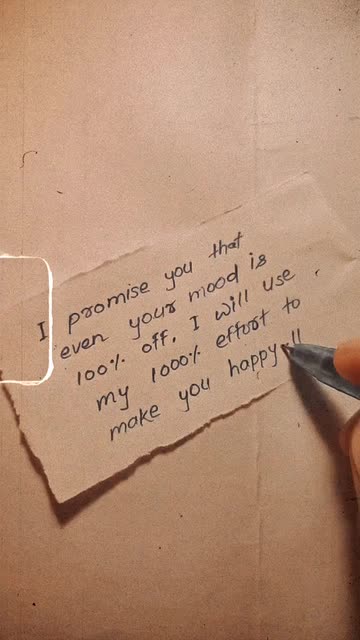 I promise you that
even your mood is
100% off. I will use
my 1000% effort to
make you happy..!!